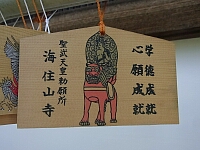 学徳成就
心願成就
聖武天皇勅願所
海住山寺